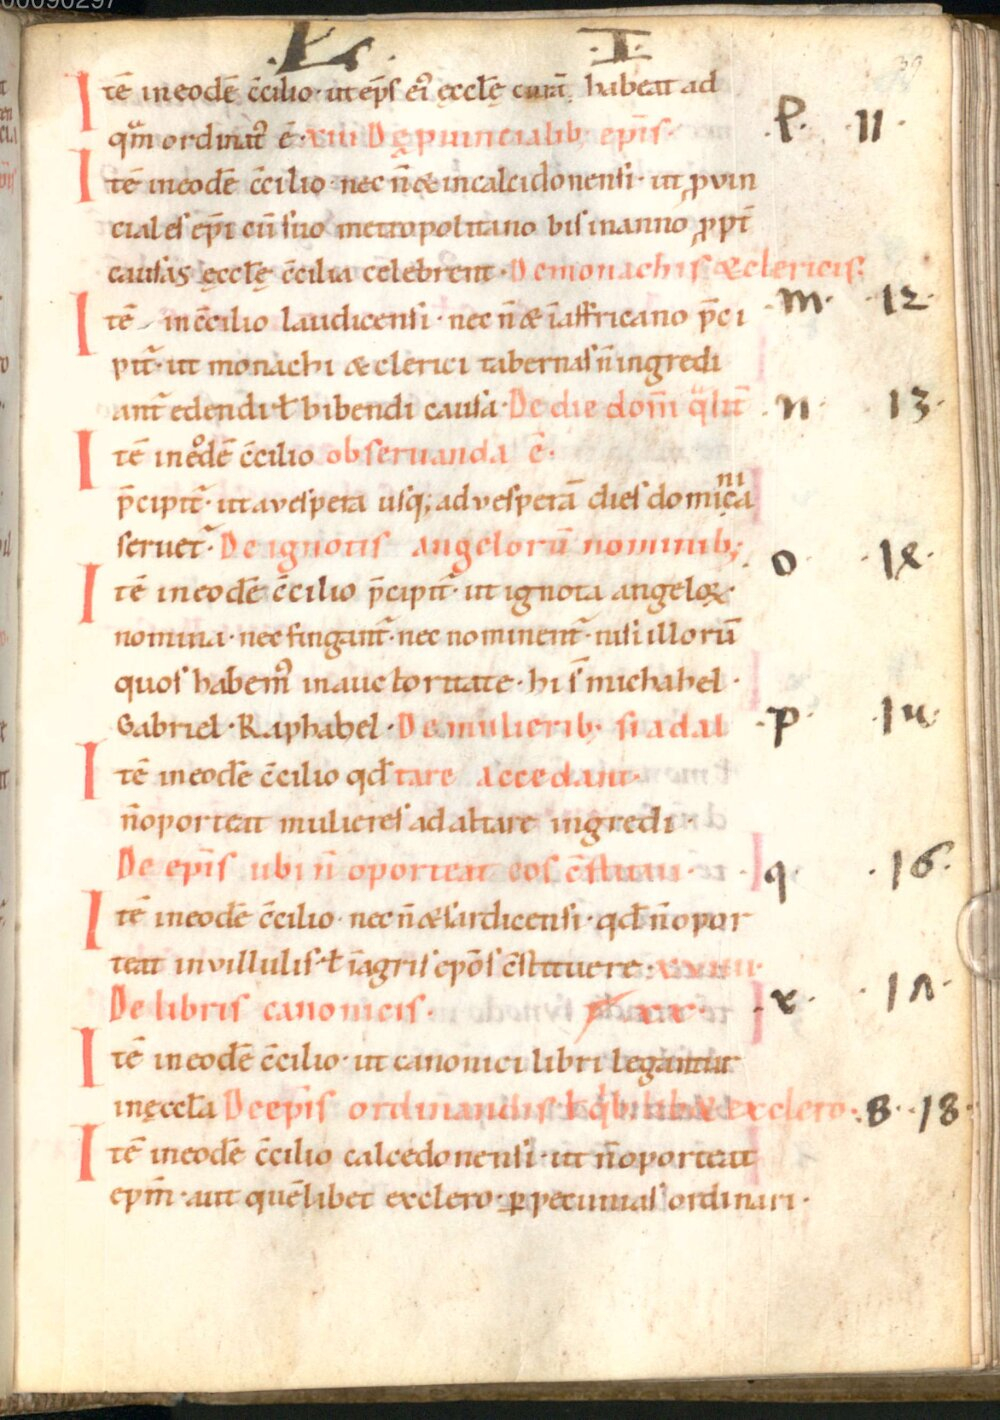 ·L· ·I·
Itē in eodē c̄cilio · ut ep̄s ei᷒ ęccłę curā habeat ad
quā ordinat᷒ ē · xiii De ꝓuincialib; ep̄is · ·l· 11·
Itē in eodē c̄cilio · nec n̄ & in calcidonensi · ut ꝓvin
ciales ep̄i cū suo metropolitano bis in anno ꝓpt̄
causas ęccłę c̄cilia celebrent · De monachis & clericis:
Itē in c̄cilio laudicensi · nec n̄ & ī affricano p̄ci ·m· 12·
pit̄ · ut monachi & clerici tabernas n̄ ingredi
ant̄ edendi ł bibendi causa · De die dom̄ qͣlit̄ ·n· 13·
Itē in eodē c̄cilio obseruanda ē ·
p̄cipit̄ · ut a vespera usq; ad vesperā dies dominica
seruet̄ · De ignotis angelorū nominib;
Itē in eodē c̄cilio p̄cipit̄ · ut ignota angeloꝝ · o· ·1ꝝ·
nomina · nec fingant̄ · nec nominent̄ · nisi illorū
quos habem᷒ in auctoritate · hi s̄ michahel ·
Gabriel · Raphahel · De mulierib; si ad al ·p· ·14·
Itē in eodē c̄cilio qđ tare accedant ·
n̄ oporteat mulieres ad altare ingredi ·
De ep̄is ubi n̄ oporteat eos c̄stitui · q ·16·
Itē in eodē c̄cilio · nec n̄ & sardicensi · qđ n̄ opor
teat in villulis ł ī agris ep̄os c̄stituere · xviiii ·
De libris canonicis · xx · ·x· ·1Λ·
Itē in eodē c̄cilio · ut canonici libri legantur
in ęccła De ep̄is ordinandis ł qͥbuslib& ex clero · ·8· ·18·
Itē in eodē c̄cilio calcedonensi · ut n̄ oporteat
ep̄m · aut quēlibet ex clero · ꝑ pecunias ordinari ·